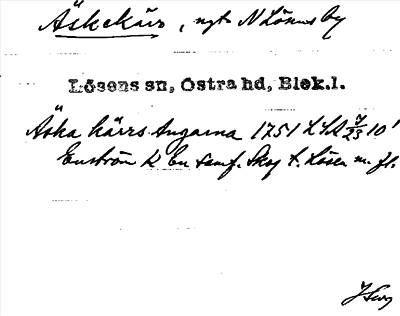 Äskekärr, ngt N Lösens by
Lösens sn, Östra hd, Blek.l.
Äska kärrs Ängarna 1751 LSA J/25 10¹
Enström K En saml. Skog t. Lösen m. fl.